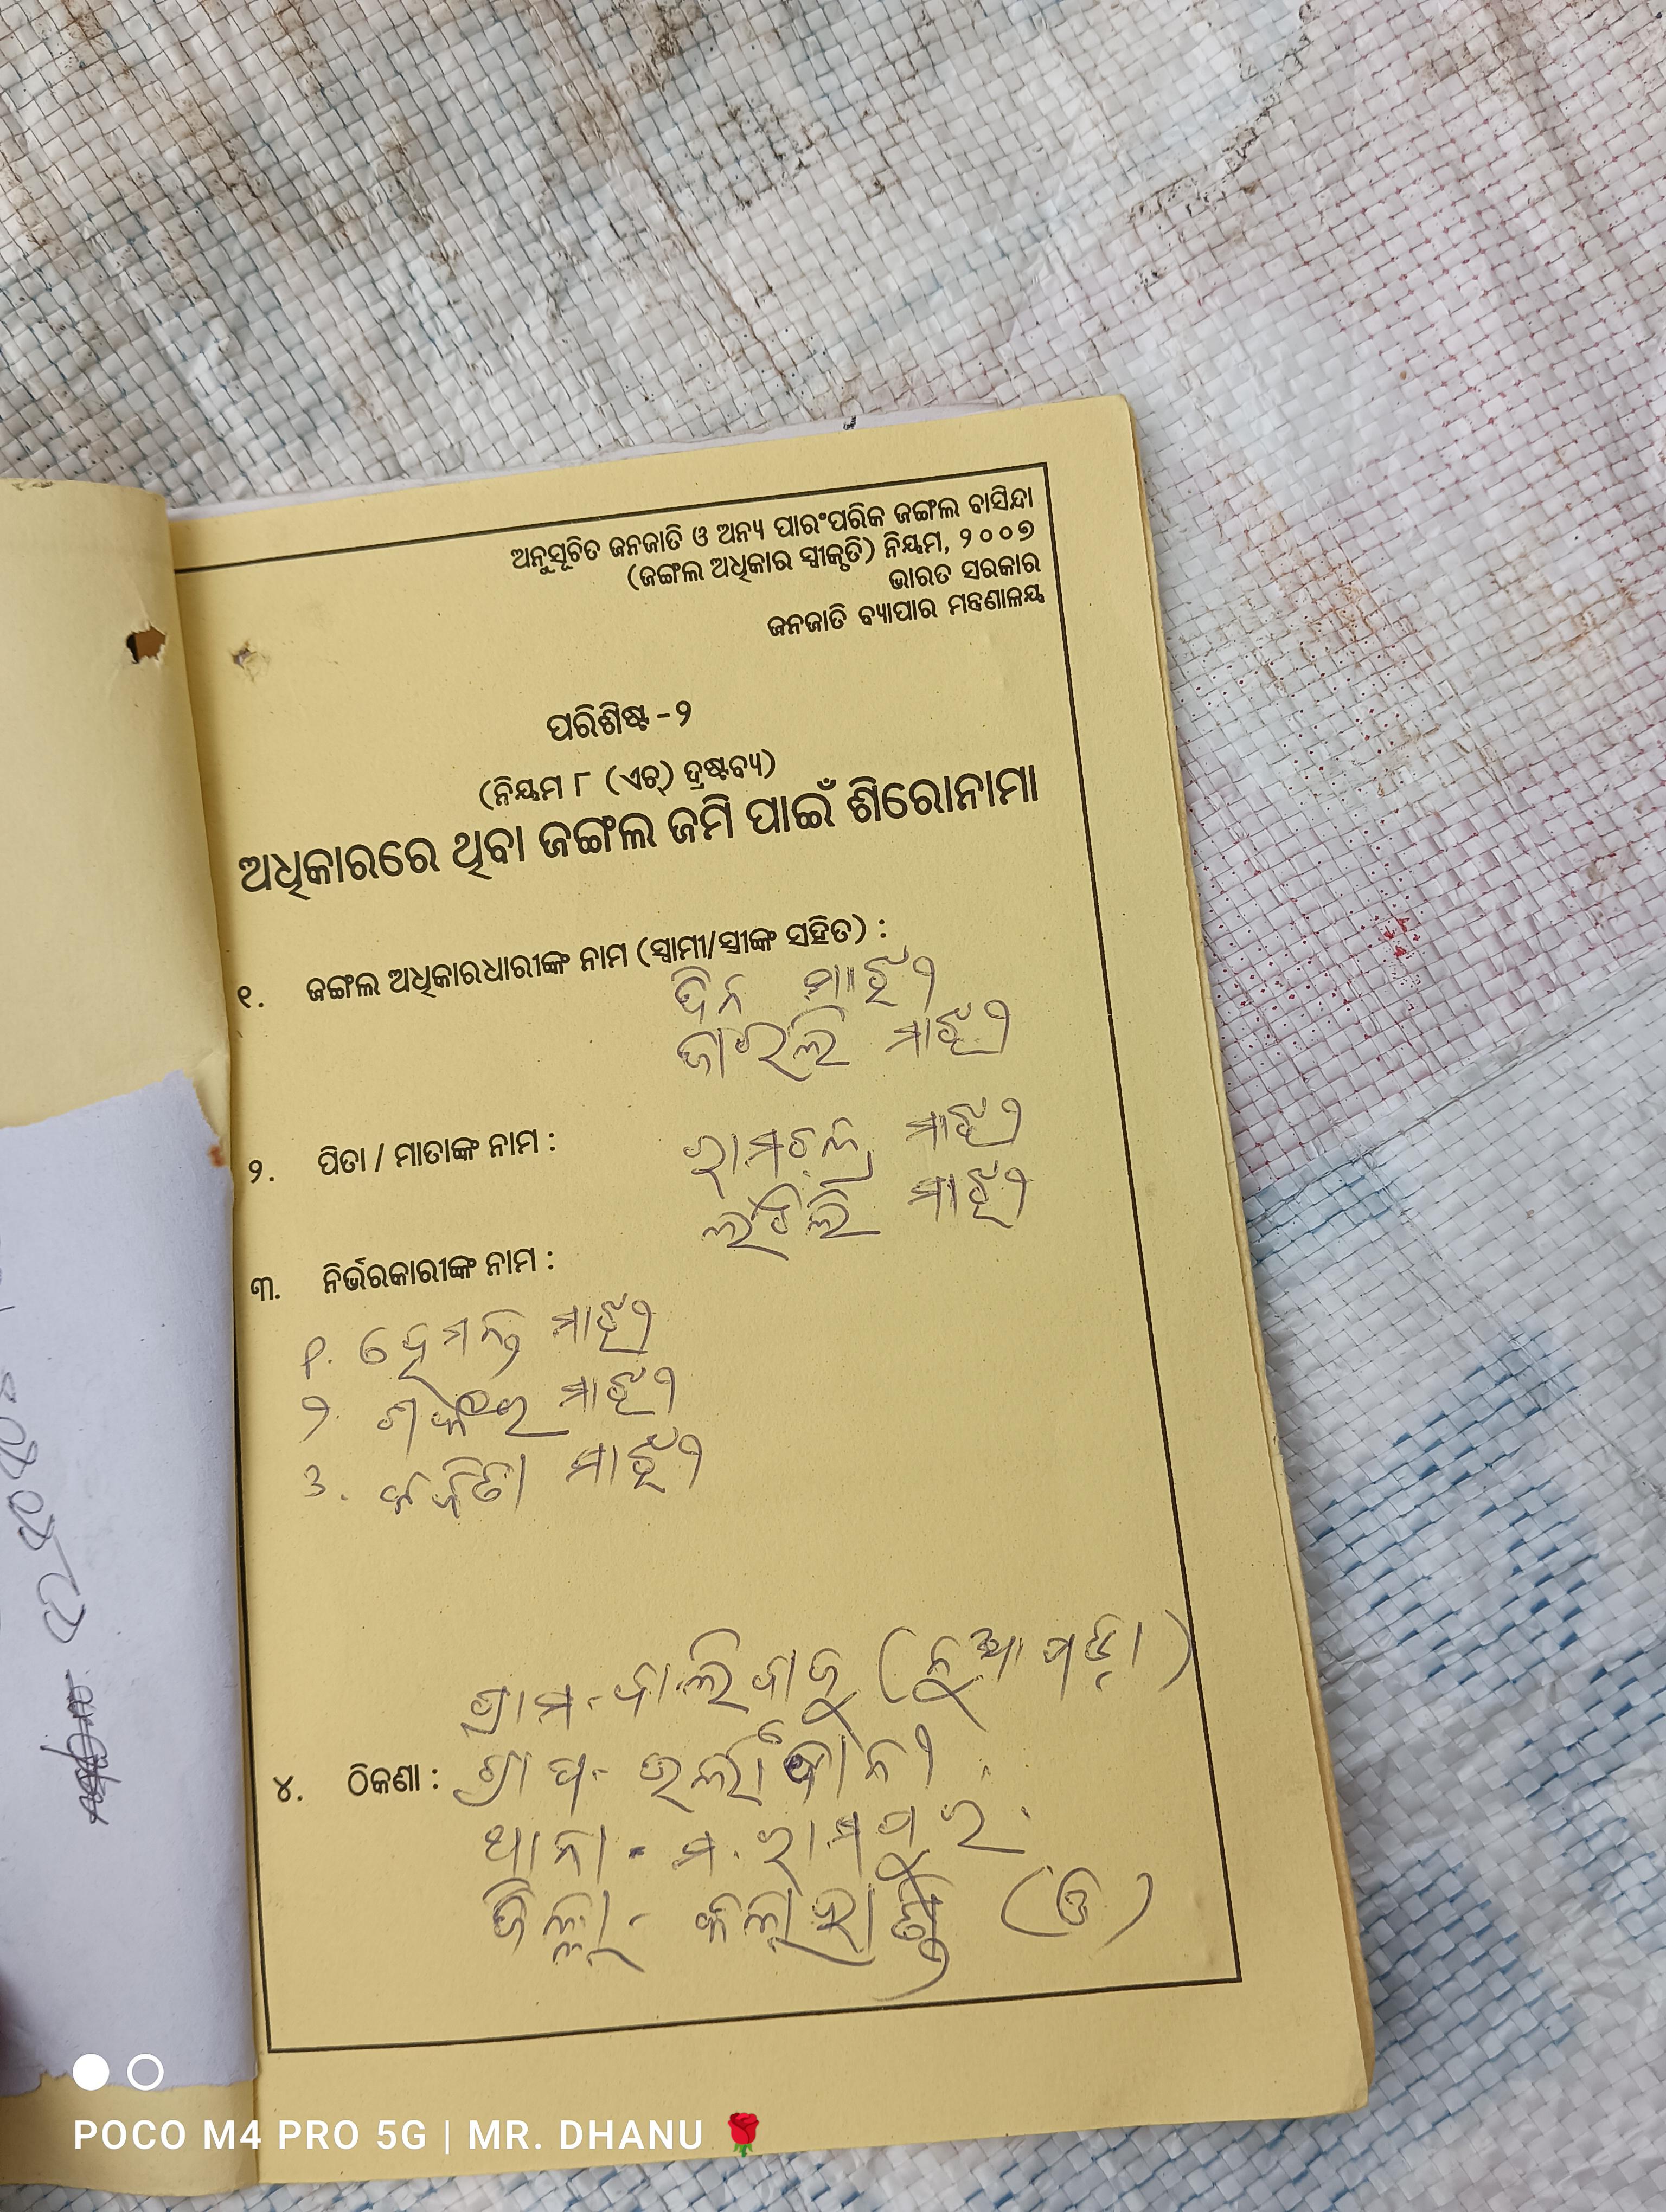 ଅନୁସୂଚିତ ଜନଜାତି ଓ ଅନ୍ୟ ପାରଂପରିକ ଜଙ୍ଗଲ ବାସିନ୍ଦା
(ଜଙ୍ଗଲ ଅଧିକାର ସ୍ୱୀକୃତି) ନିୟମ, ୨୦୦୭
ଭାରତ ସରକାର
ଜନଜାତି ବ୍ୟାପାର ମନ୍ତ୍ରଣାଳୟ
ପରିଶିଷ୍ଟ - ୨
(ନିୟମ ୮ (ଏଚ୍) ଦ୍ରଷ୍ଟବ୍ୟ)
ଅଧିକାରରେ ଥିବା ଜଙ୍ଗଲ ଜମି ପାଇଁ ଶିରୋନାମା
୧. ଜଙ୍ଗଲ ଅଧିକାରଧାରୀଙ୍କ ନାମ (ସ୍ୱାମୀ/ସ୍ତ୍ରୀଙ୍କ ସହିତ) :
ଦିନ ମାଝୀ
ମାଝୀ
୨. ପିତା / ମାତାଙ୍କ ନାମ :
ମାଝୀ
ମାଝୀ
୩. ନିର୍ଭରକାରୀଙ୍କ ନାମ :
୧. ହେମନ୍ତ ମାଝୀ
୨. ମାଝୀ
୩. ମାଝୀ
ଗ୍ରାମ - (ନୁଆପଡ଼ା)
୪. ଠିକଣା : ଗ୍ରାପ -
ଥାନା - ମ. ରାମପୁର
ଜିଲ୍ଲା - (ଓ)
POCO M4 PRO 5G | MR. DHANU 🌹